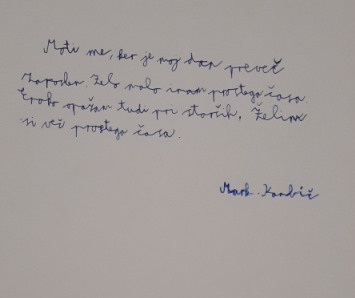 Moti me, ker je moj dan preveč
zaposlen. Zelo malo imam prostega časa.
Enako opažam tudi pri starših. Želim
si več prostega časa.
Mark